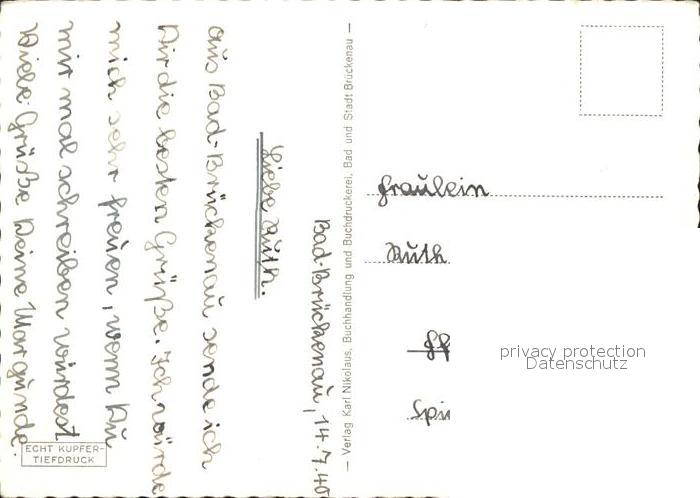 Bad-Brückenau, 14.7.40
Liebe Ruth.
Aus Bad-Brückenau sende ich
Dir die besten Grüße. Ich würde
mich sehr freuen, wenn Du
mir mal schreiben würdest
Viele Grüße Deine Margunde.
ECHT KUPFER-
TIEFDRUCK
— Verlag Karl Nikolaus, Buchhandlung und Buchdruckerei, Bad und Stadt Brückenau —
Fräulein
Ruth
privacy protection
Datenschutz